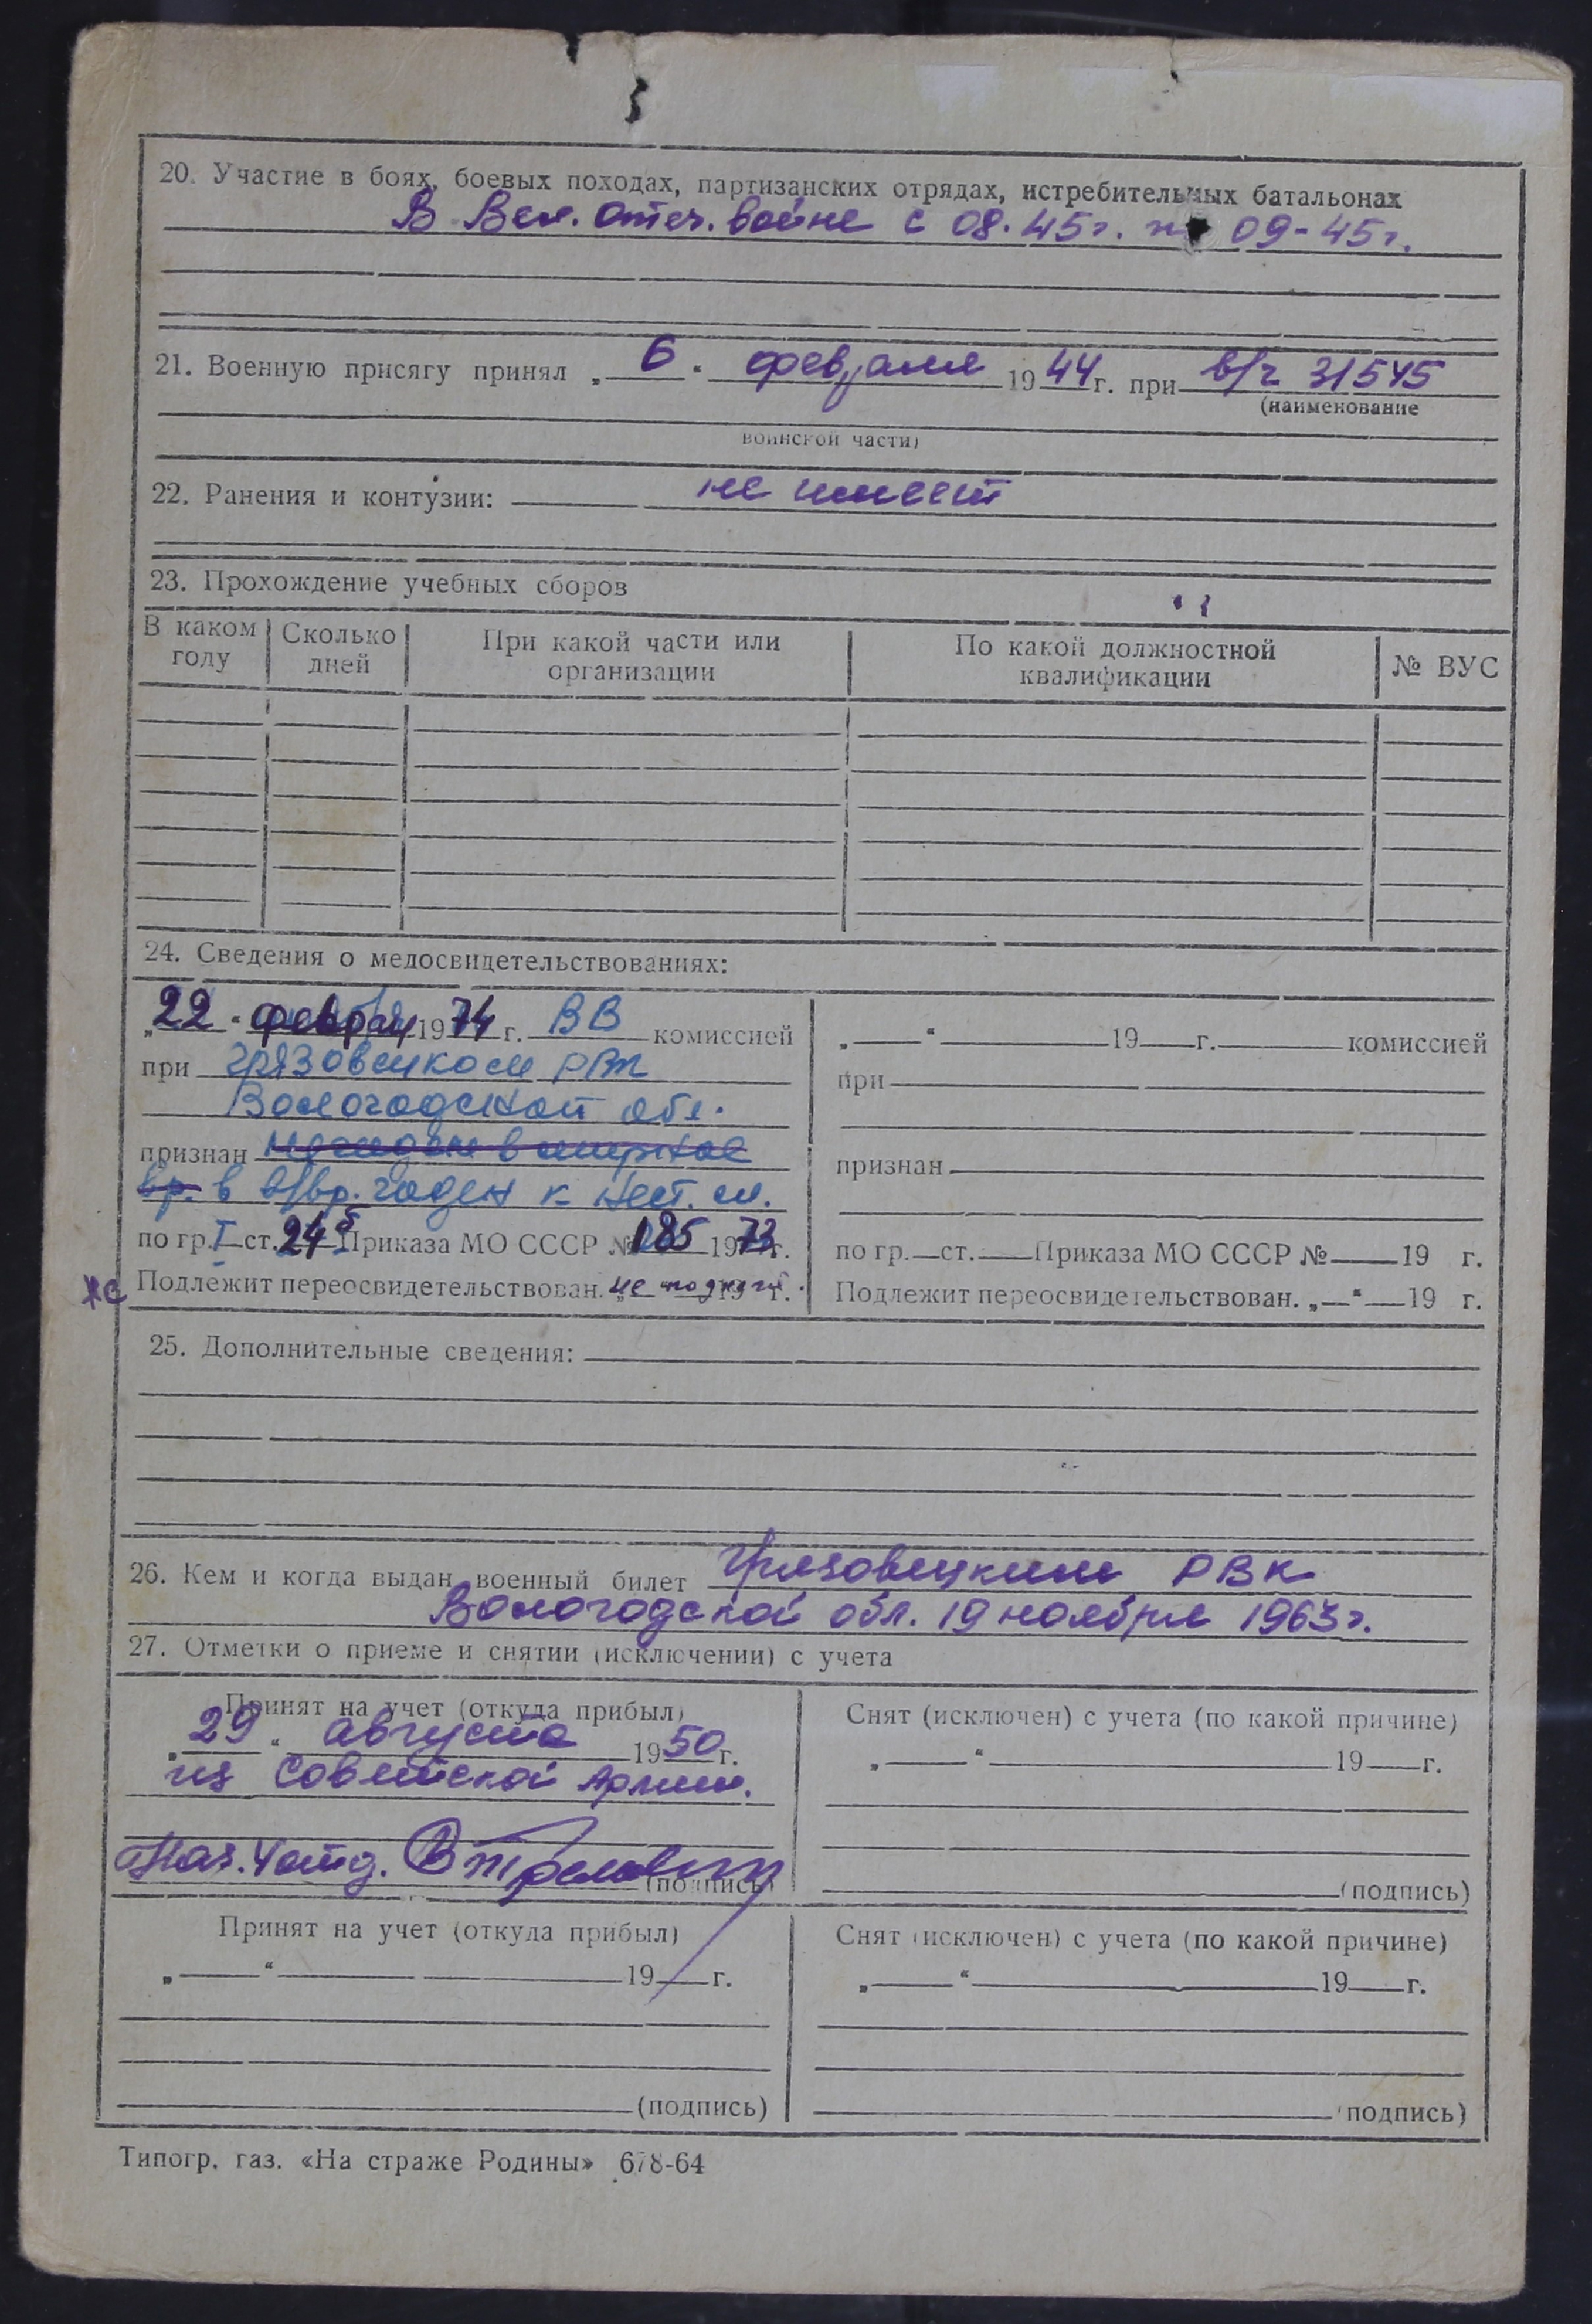 20. Участие в боях, боевых походах, партизанских отрядах, истребительных батальонах
В Вел. Отеч. войне с 08.45г. по 09-45г.
21. Военную присягу принял „ 6 “ февраля 1944 г. при в/ч 31545
(наименование
воинской части)
22. Ранения и контузии: не имеет
23. Прохождение учебных сборов
В каком году Сколько дней При какой части или организации По какой должностной квалификации № ВУС
24. Сведения о медосвидетельствованиях:
„22“ феврал 1974 г. ВВ комиссией
при Грязовецком РВК
Вологодской обл.
признан
вр. в в/вр. годен к нест. сл.
по гр. I ст. 24б Приказа МО СССР № 185 1973 г.
Подлежит переосвидетельствован. не подлеж 19 г.
„ “ 19 г. комиссией
при
признан
по гр. ст. Приказа МО СССР № 19 г.
Подлежит переосвидетельствован. „ “ 19 г.
25. Дополнительные сведения:
26. Кем и когда выдан военный билет Грязовецким РВК
Вологодской обл. 19 ноября 1963г.
27. Отметки о приеме и снятии (исключении) с учета
Принят на учет (откуда прибыл)
„29“ августа 1950 г.
из Советской Армии.
Нач. 4 отд.
(подпись)
Снят (исключен) с учета (по какой причине)
„ “ 19 г.
(подпись)
Принят на учет (откуда прибыл)
„ “ 19 г.
(подпись)
Снят (исключен) с учета (по какой причине)
„ “ 19 г.
(подпись)
Типогр. газ. «На страже Родины» 678-64